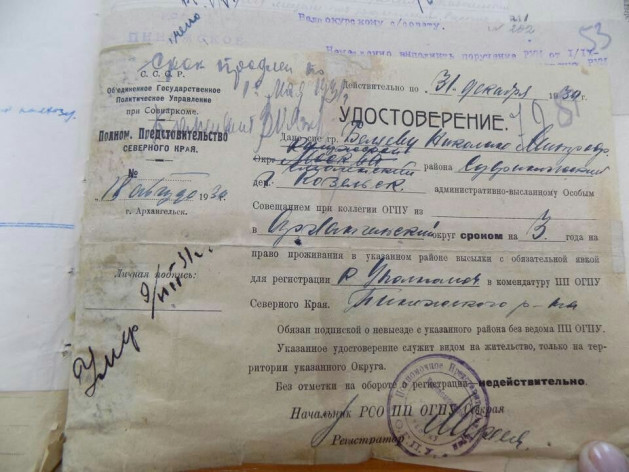 Надкурскому с/совету.
53
Немедленно выполнить поручение РУО от 1/IV-
Срок продлен по
1 мая 193
С. С. С. Р.
Объединенное Государственное
Политическое Управление
при Совнаркоме.
Полном. Представительство
СЕВЕРНОГО КРАЯ.
№
18 октября 1930.
г. Архангельск.
Личная подпись:
Умер 9/VIII 31 г.
Действительно по 31 декабря 1930
УДОСТОВЕРЕНИЕ.
Дано сие гр. Беляеву Николаю Дмитр.
Окр. района Сухиничский
дер. г. Козельск административно-высланному Особым
Совещанием при коллегии ОГПУ из
в Архангельский округ сроком на 3 года на
право проживания в указанном районе высылки с обязательной явкой
для регистрации к Уполномоч в комендатуру ПП ОГПУ
Северного Края. Пинежского р-на
Обязан подпиской о невыезде с указанного района без ведома ПП ОГПУ.
Указанное удостоверение служит видом на жительство, только на тер-
ритории указанного Округа.
Без отметки на обороте о регистрации—недействительно.
Начальник РСО ПП ОГПУ Севкрая
Регистратор